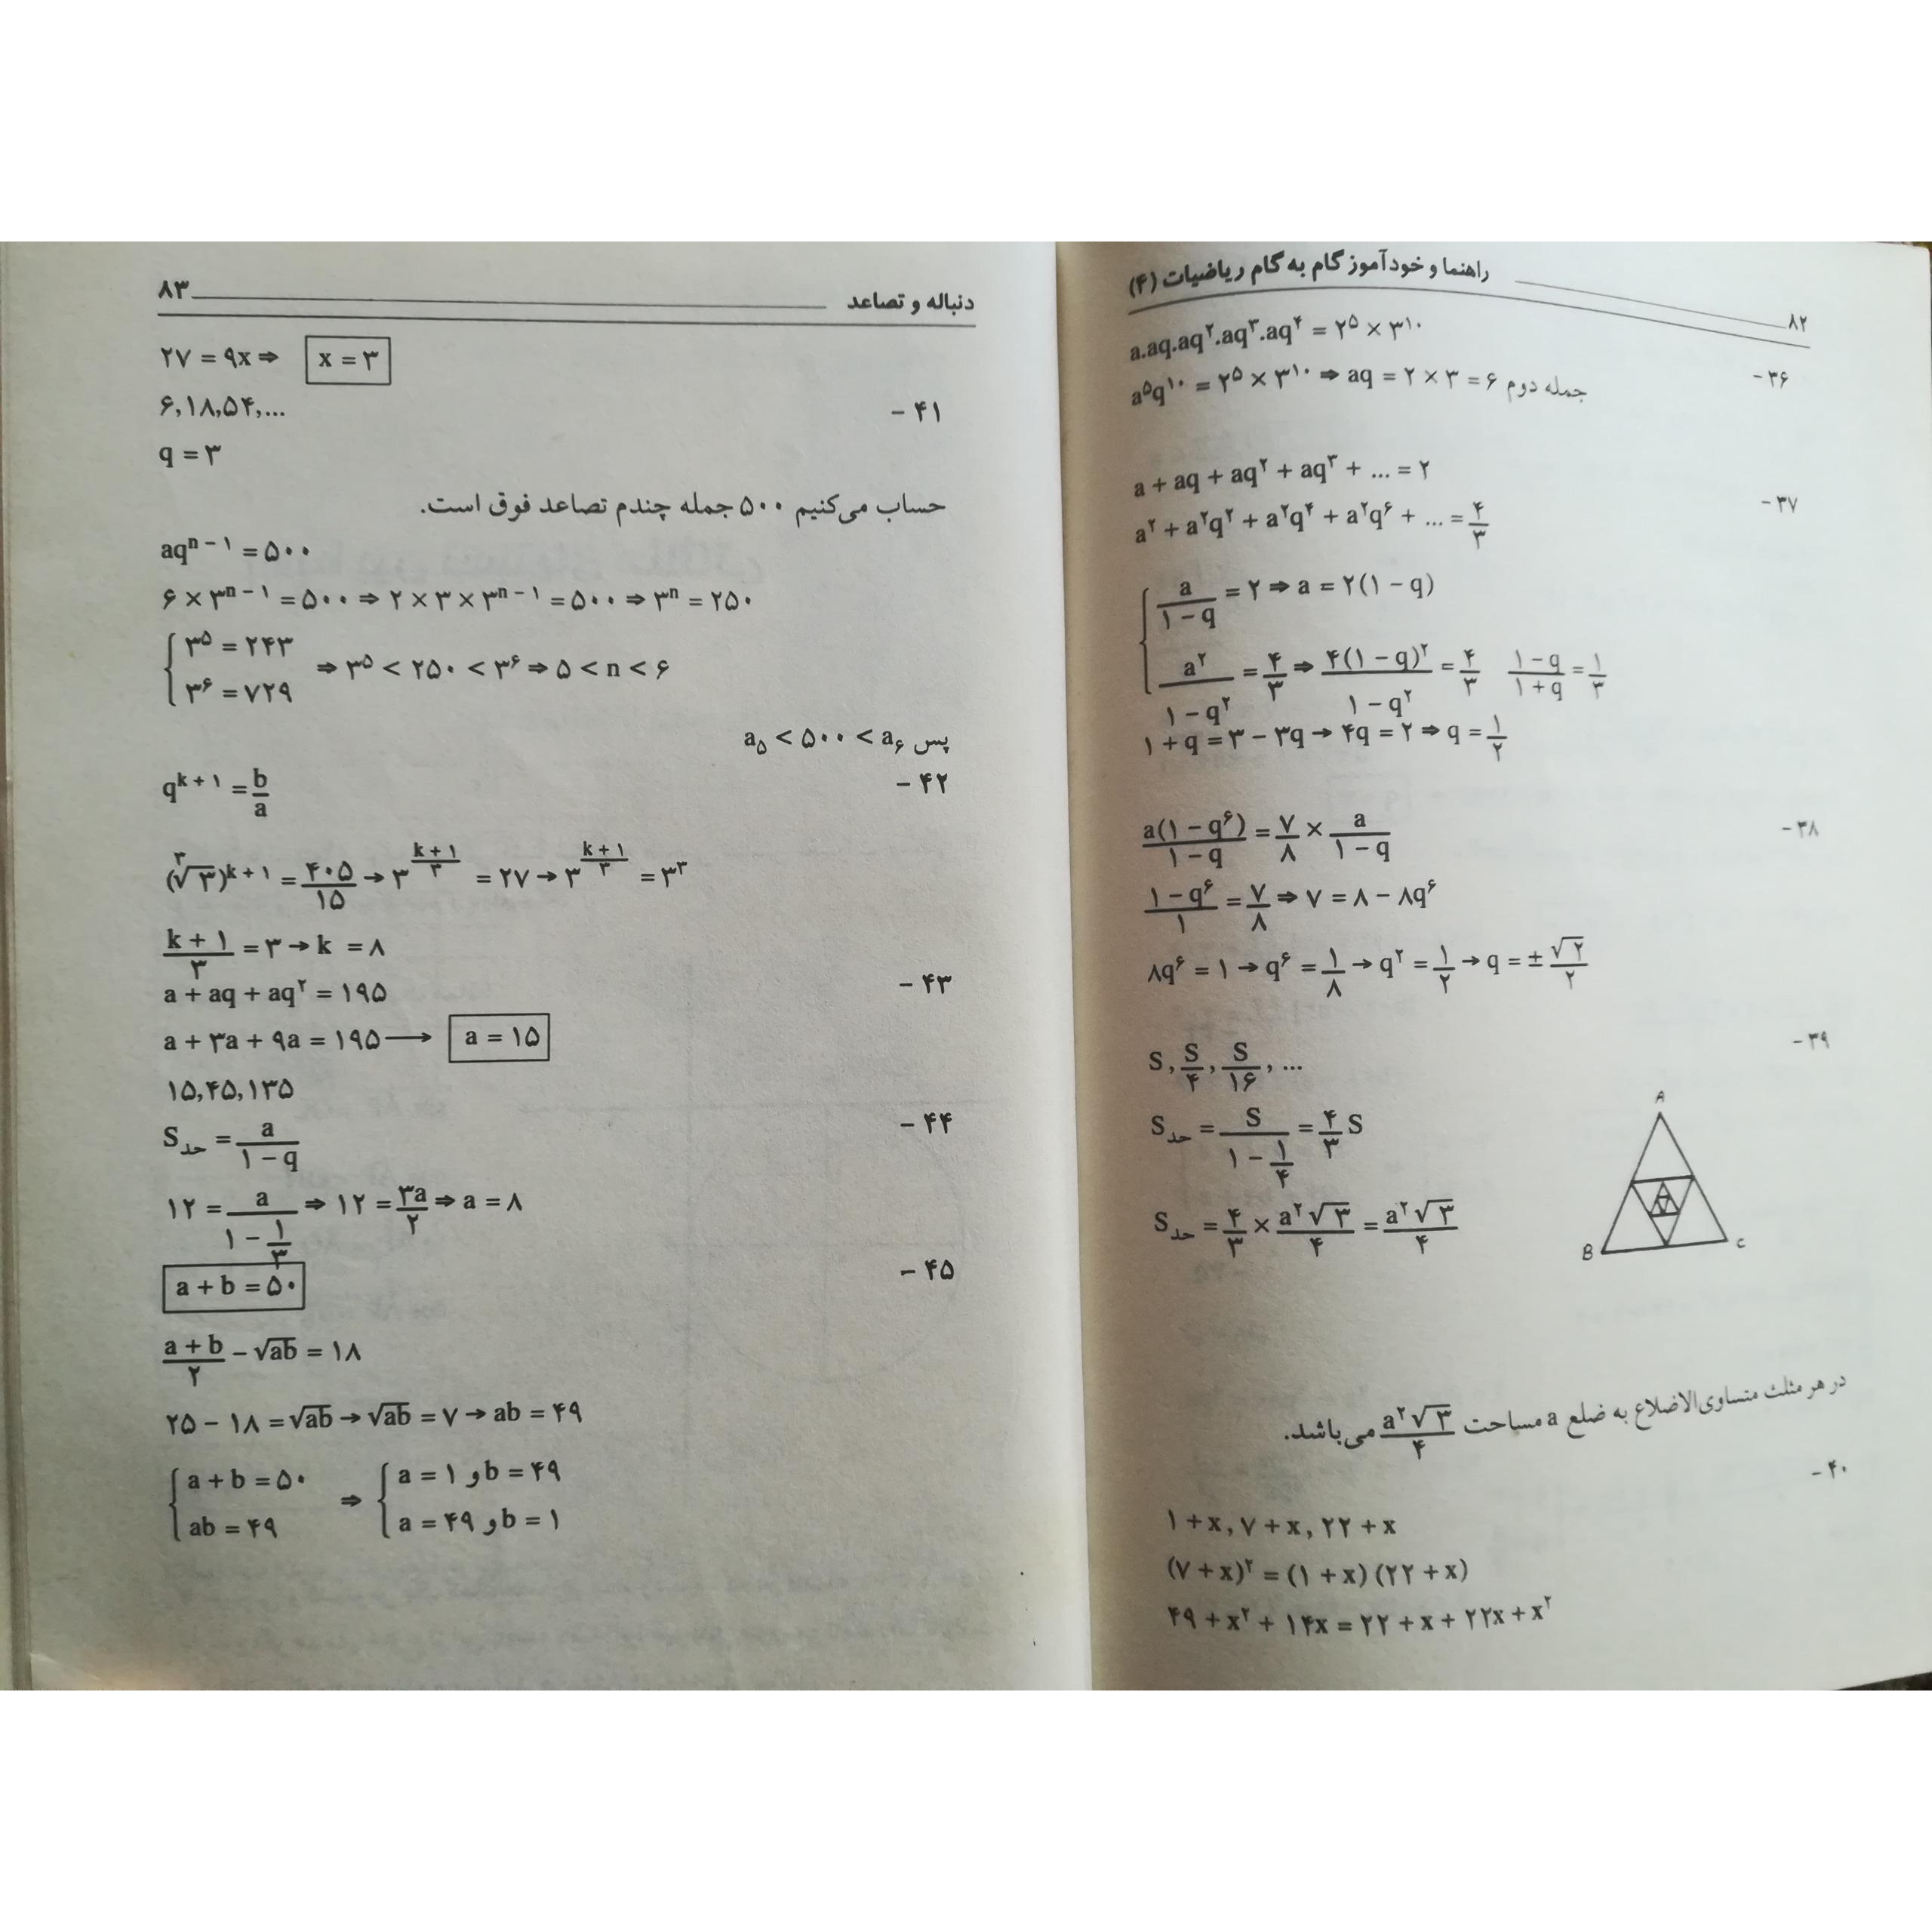 راهنما و خودآموز گام به گام ریاضیات (۴) ۸۲
a.aq.aq^۲.aq^۳.aq^۴ = ۲^۵ × ۳^۱۰
۳۶ -
a^۵q^۱۰ = ۲^۵ × ۳^۱۰ ⇒ aq = ۲ × ۳ = ۶ جمله دوم
a + aq + aq^۲ + aq^۳ + ... = ۲
۳۷ -
a^۲ + a^۲q^۲ + a^۲q^۴ + a^۲q^۶ + ... = ۴/۳
a/(۱ - q) = ۲ ⇒ a = ۲(۱ - q)
a^۲/(۱ - q^۲) = ۴/۳ ⇒ ۴(۱ - q)^۲/(۱ - q^۲) = ۴/۳ (۱ - q)/(۱ + q) = ۱/۳
۱ + q = ۳ - ۳q → ۴q = ۲ ⇒ q = ۱/۲
۳۸ -
a(۱ - q^۶)/(۱ - q) = ۷/۸ × a/(۱ - q)
(۱ - q^۶)/۱ = ۷/۸ ⇒ ۷ = ۸ - ۸q^۶
۸q^۶ = ۱ → q^۶ = ۱/۸ → q^۲ = ۱/۲ → q = ± √۲/۲
۳۹ -
S, S/۴, S/۱۶, ...
S حد = S/(۱ - ۱/۴) = ۴/۳ S
S حد = ۴/۳ × a^۲√۳/۴ = a^۲√۳/۴
A
B
C
در هر مثلث متساوی‌الاضلاع به ضلع a مساحت a^۲√۳/۴ می‌باشد.
۴۰ -
۱ + x, ۷ + x, ۲۲ + x
(۷ + x)^۲ = (۱ + x) (۲۲ + x)
۴۹ + x^۲ + ۱۴x = ۲۲ + x + ۲۲x + x^۲
دنباله و تصاعد ۸۳
۲۷ = ۹x ⇒ x = ۳
۴۱ -
۶,۱۸,۵۴,...
q = ۳
حساب می‌کنیم ۵۰۰ جمله چندم تصاعد فوق است.
aq^(n - ۱) = ۵۰۰
۶ × ۳^(n - ۱) = ۵۰۰ ⇒ ۲ × ۳ × ۳^(n - ۱) = ۵۰۰ ⇒ ۳^n = ۲۵۰
۳^۵ = ۲۴۳
۳^۶ = ۷۲۹ ⇒ ۳^۵ < ۲۵۰ < ۳^۶ ⇒ ۵ < n < ۶
پس a۵ < ۵۰۰ < a۶
۴۲ -
q^(k + ۱) = b/a
(∛۳)^(k + ۱) = ۴۰۵/۱۵ → ۳^((k + ۱)/۳) = ۲۷ → ۳^((k + ۱)/۳) = ۳^۳
(k + ۱)/۳ = ۳ → k = ۸
۴۳ -
a + aq + aq^۲ = ۱۹۵
a + ۳a + ۹a = ۱۹۵ ⟶ a = ۱۵
۱۵,۴۵,۱۳۵
۴۴ -
S حد = a/(۱ - q)
۱۲ = a/(۱ - ۱/۳) ⇒ ۱۲ = ۳a/۲ ⇒ a = ۸
۴۵ -
a + b = ۵۰
(a + b)/۲ - √ab = ۱۸
۲۵ - ۱۸ = √ab → √ab = ۷ → ab = ۴۹
a + b = ۵۰ ⇒ a = ۱ و b = ۴۹
ab = ۴۹ a = ۴۹ و b = ۱